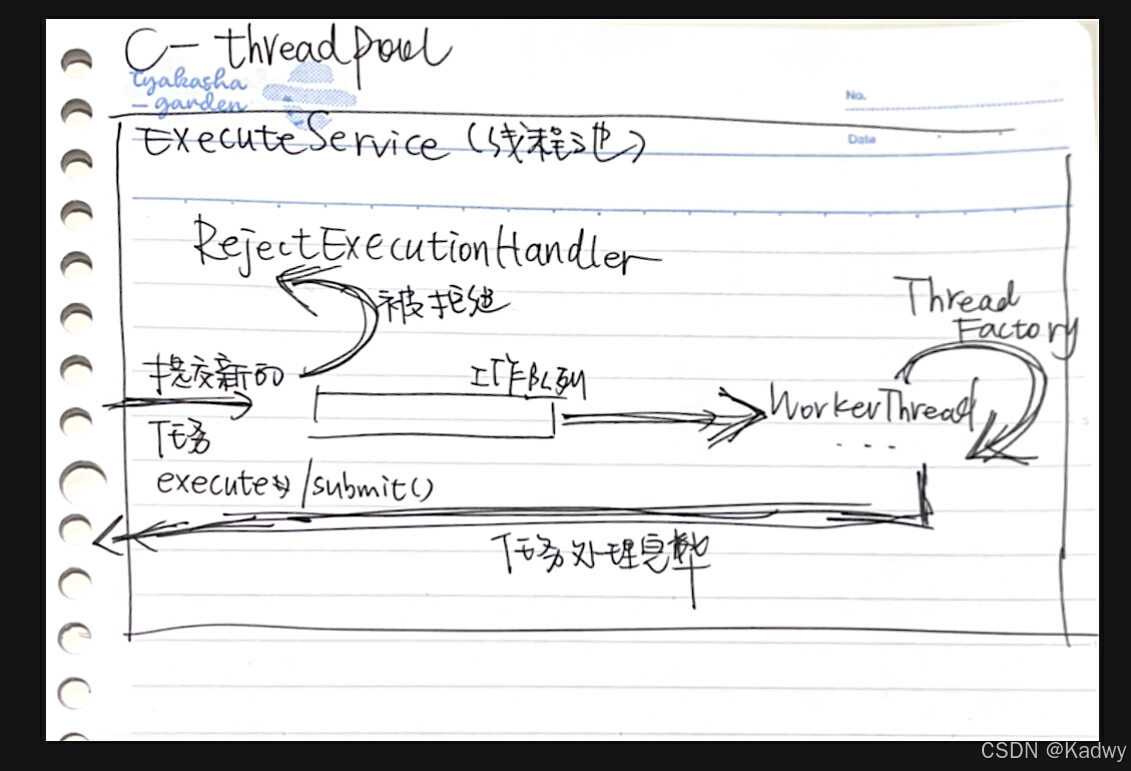 C-threadpool
tyakasha
-garden
No.
Date
ExecuteService (线程池)
RejectExecutionHandler
被拒绝
Thread
Factory
提交新的
任务
工作队列
WorkerThread
...
execute() /submit()
任务处理完毕
CSDN @Kadwy